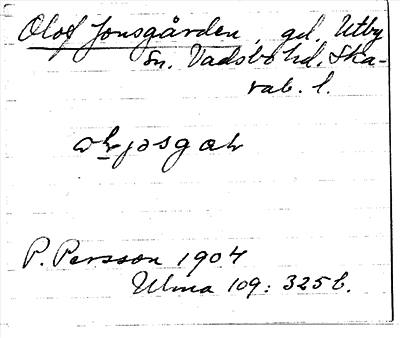 Olof Jonsgården, gd, Utby
sn. Vadsbo hd. Ska-
rab. l.
P. Persson 1904
Ulma 109: 325 b.